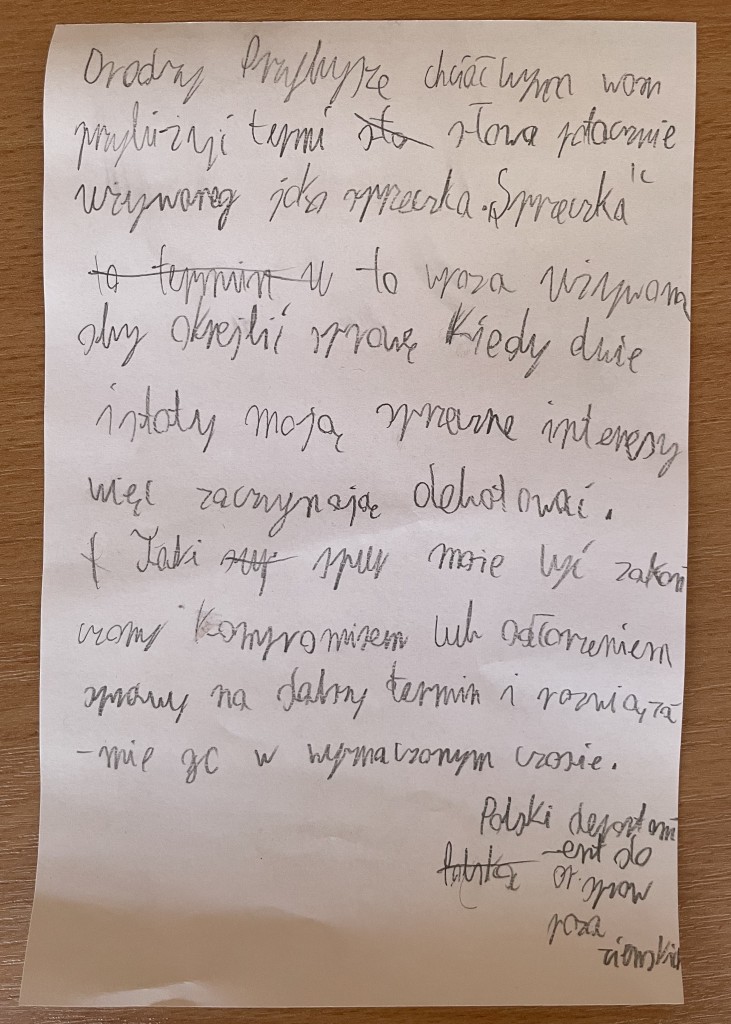 Drodzy Przybysze chciałbym wam
przybliżyć termi słowa potocznie
używaneg jako sprzeczka. „Sprzeczka"
to termin u to wyraz używam
aby okrejlić sprawę kiedy dwie
istoty mają sprzeczne interesy
więc zaczynają debatować.
Taki spur może być zakoń
czony kompromisem lub odłorzeniem
sprawy na dalszy termin i rozwiąza
-nie go w wyznaczonym czasie.
Polski departam
-ent do
Polska or. spraw
poza
ziemskich